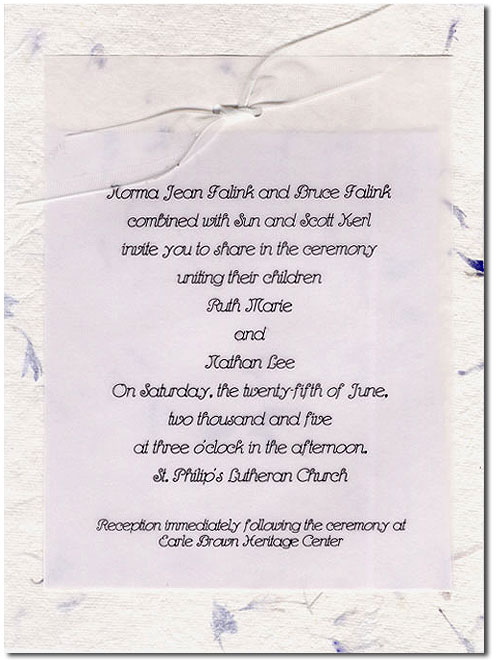 Norma Jean Falink and Bruce Falink
combined with Sun and Scott Kerl
invite you to share in the ceremony
uniting their children
Ruth Marie
and
Nathan Lee
On Saturday, the twenty-fifth of June,
two thousand and five
at three o'clock in the afternoon.
St. Philip's Lutheran Church
Reception immediately following the ceremony at
Earle Brown Heritage Center